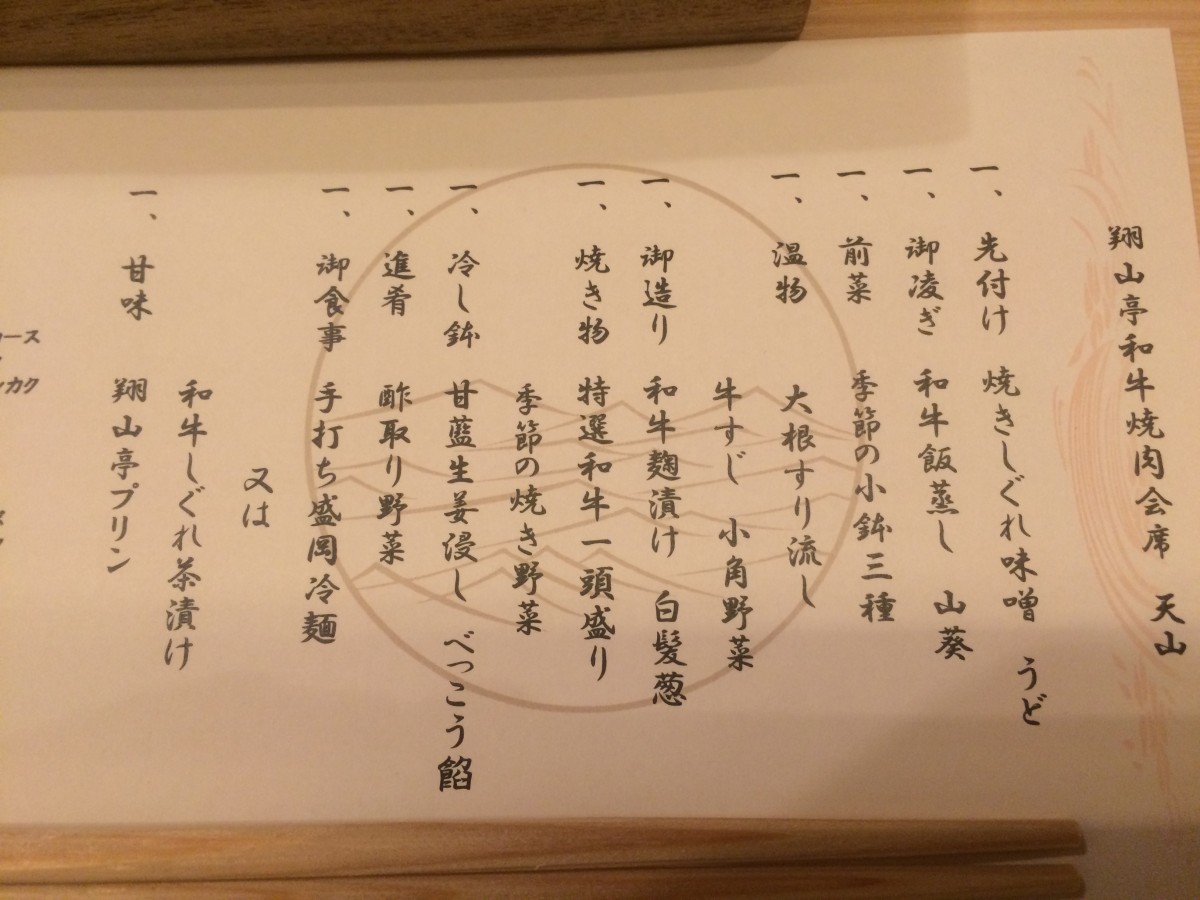 翔山亭和牛焼肉会席　天山
一、先付け　焼きしぐれ味噌　うど
一、御凌ぎ　和牛飯蒸し　山葵
一、前菜　季節の小鉢三種
一、温物　大根すり流し
牛すじ　小角野菜
一、御造り　和牛麹漬け　白髪葱
一、焼き物　特選和牛一頭盛り
季節の焼き野菜
一、冷し鉢　甘藍生姜浸し　べっこう餡
一、進肴　酢取り野菜
一、御食事　手打ち盛岡冷麺
又は
和牛しぐれ茶漬け
一、甘味　翔山亭プリン